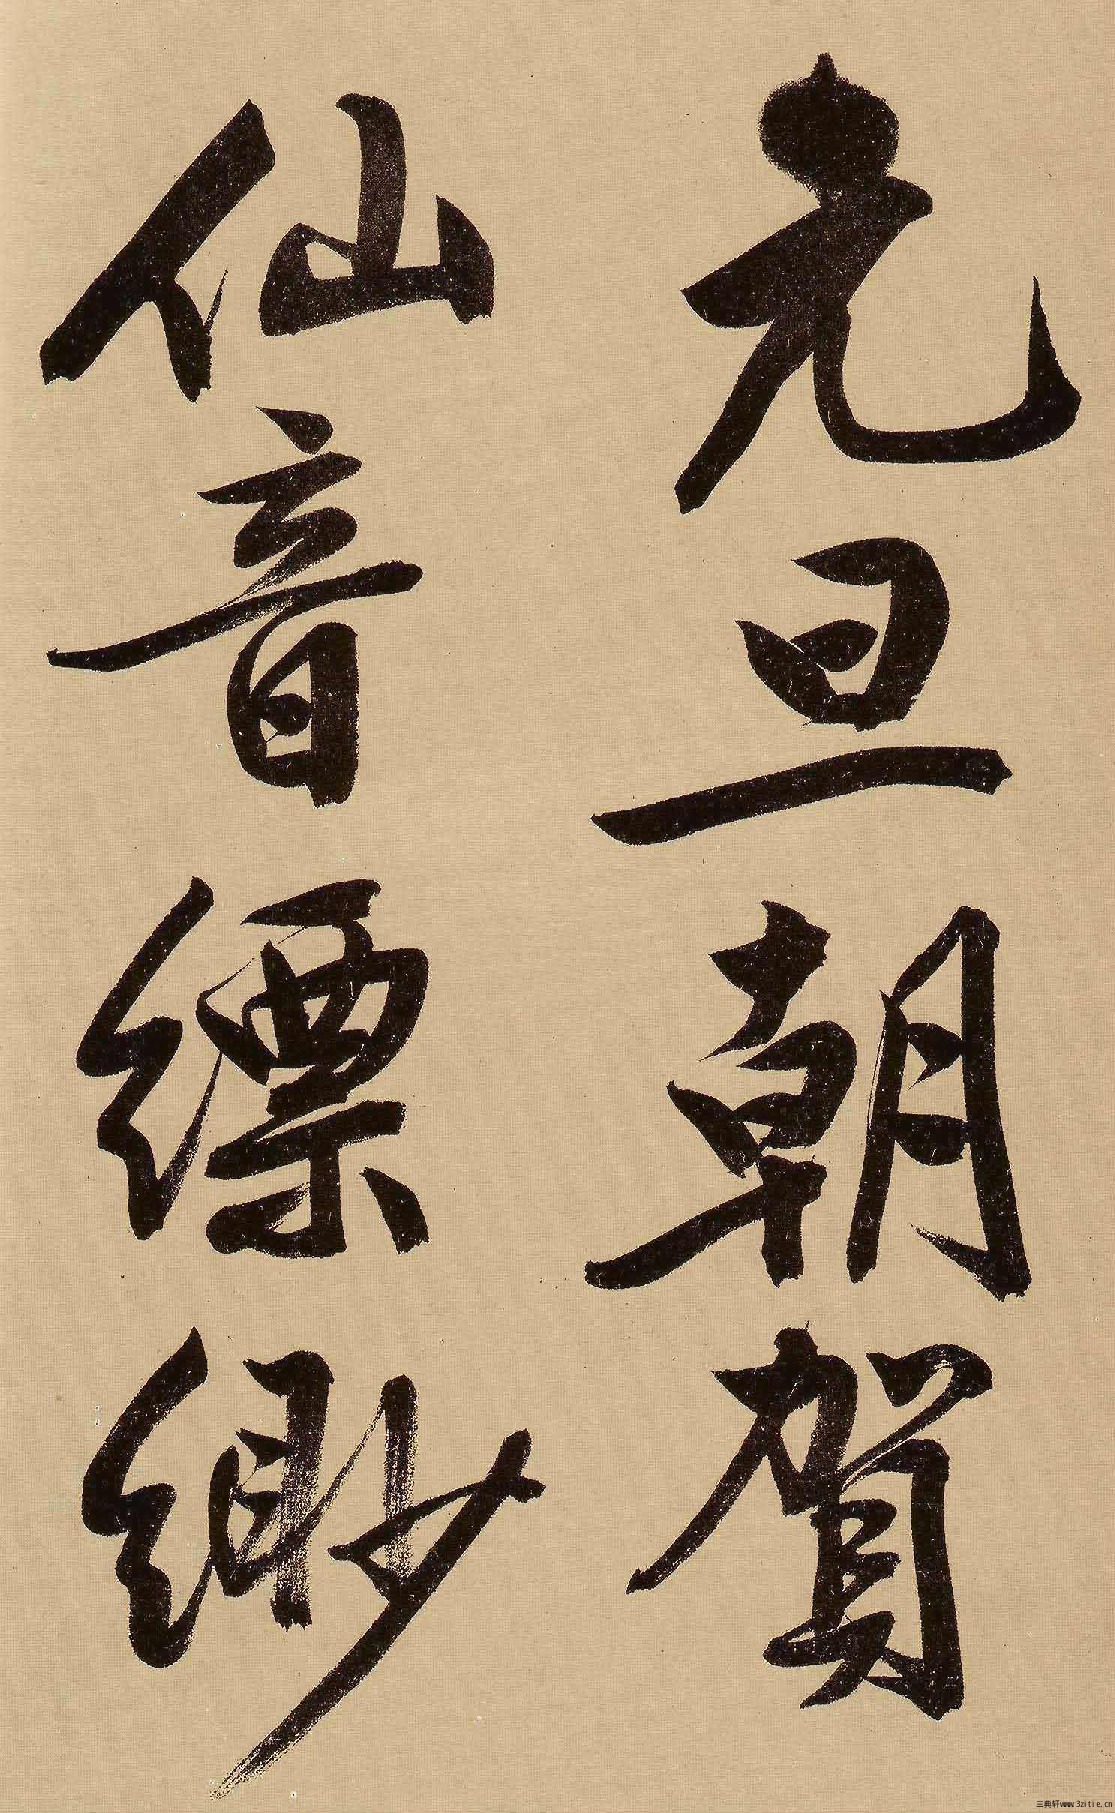 元旦朝賀
仙音縹緲
三典轩www.3zitie.cn